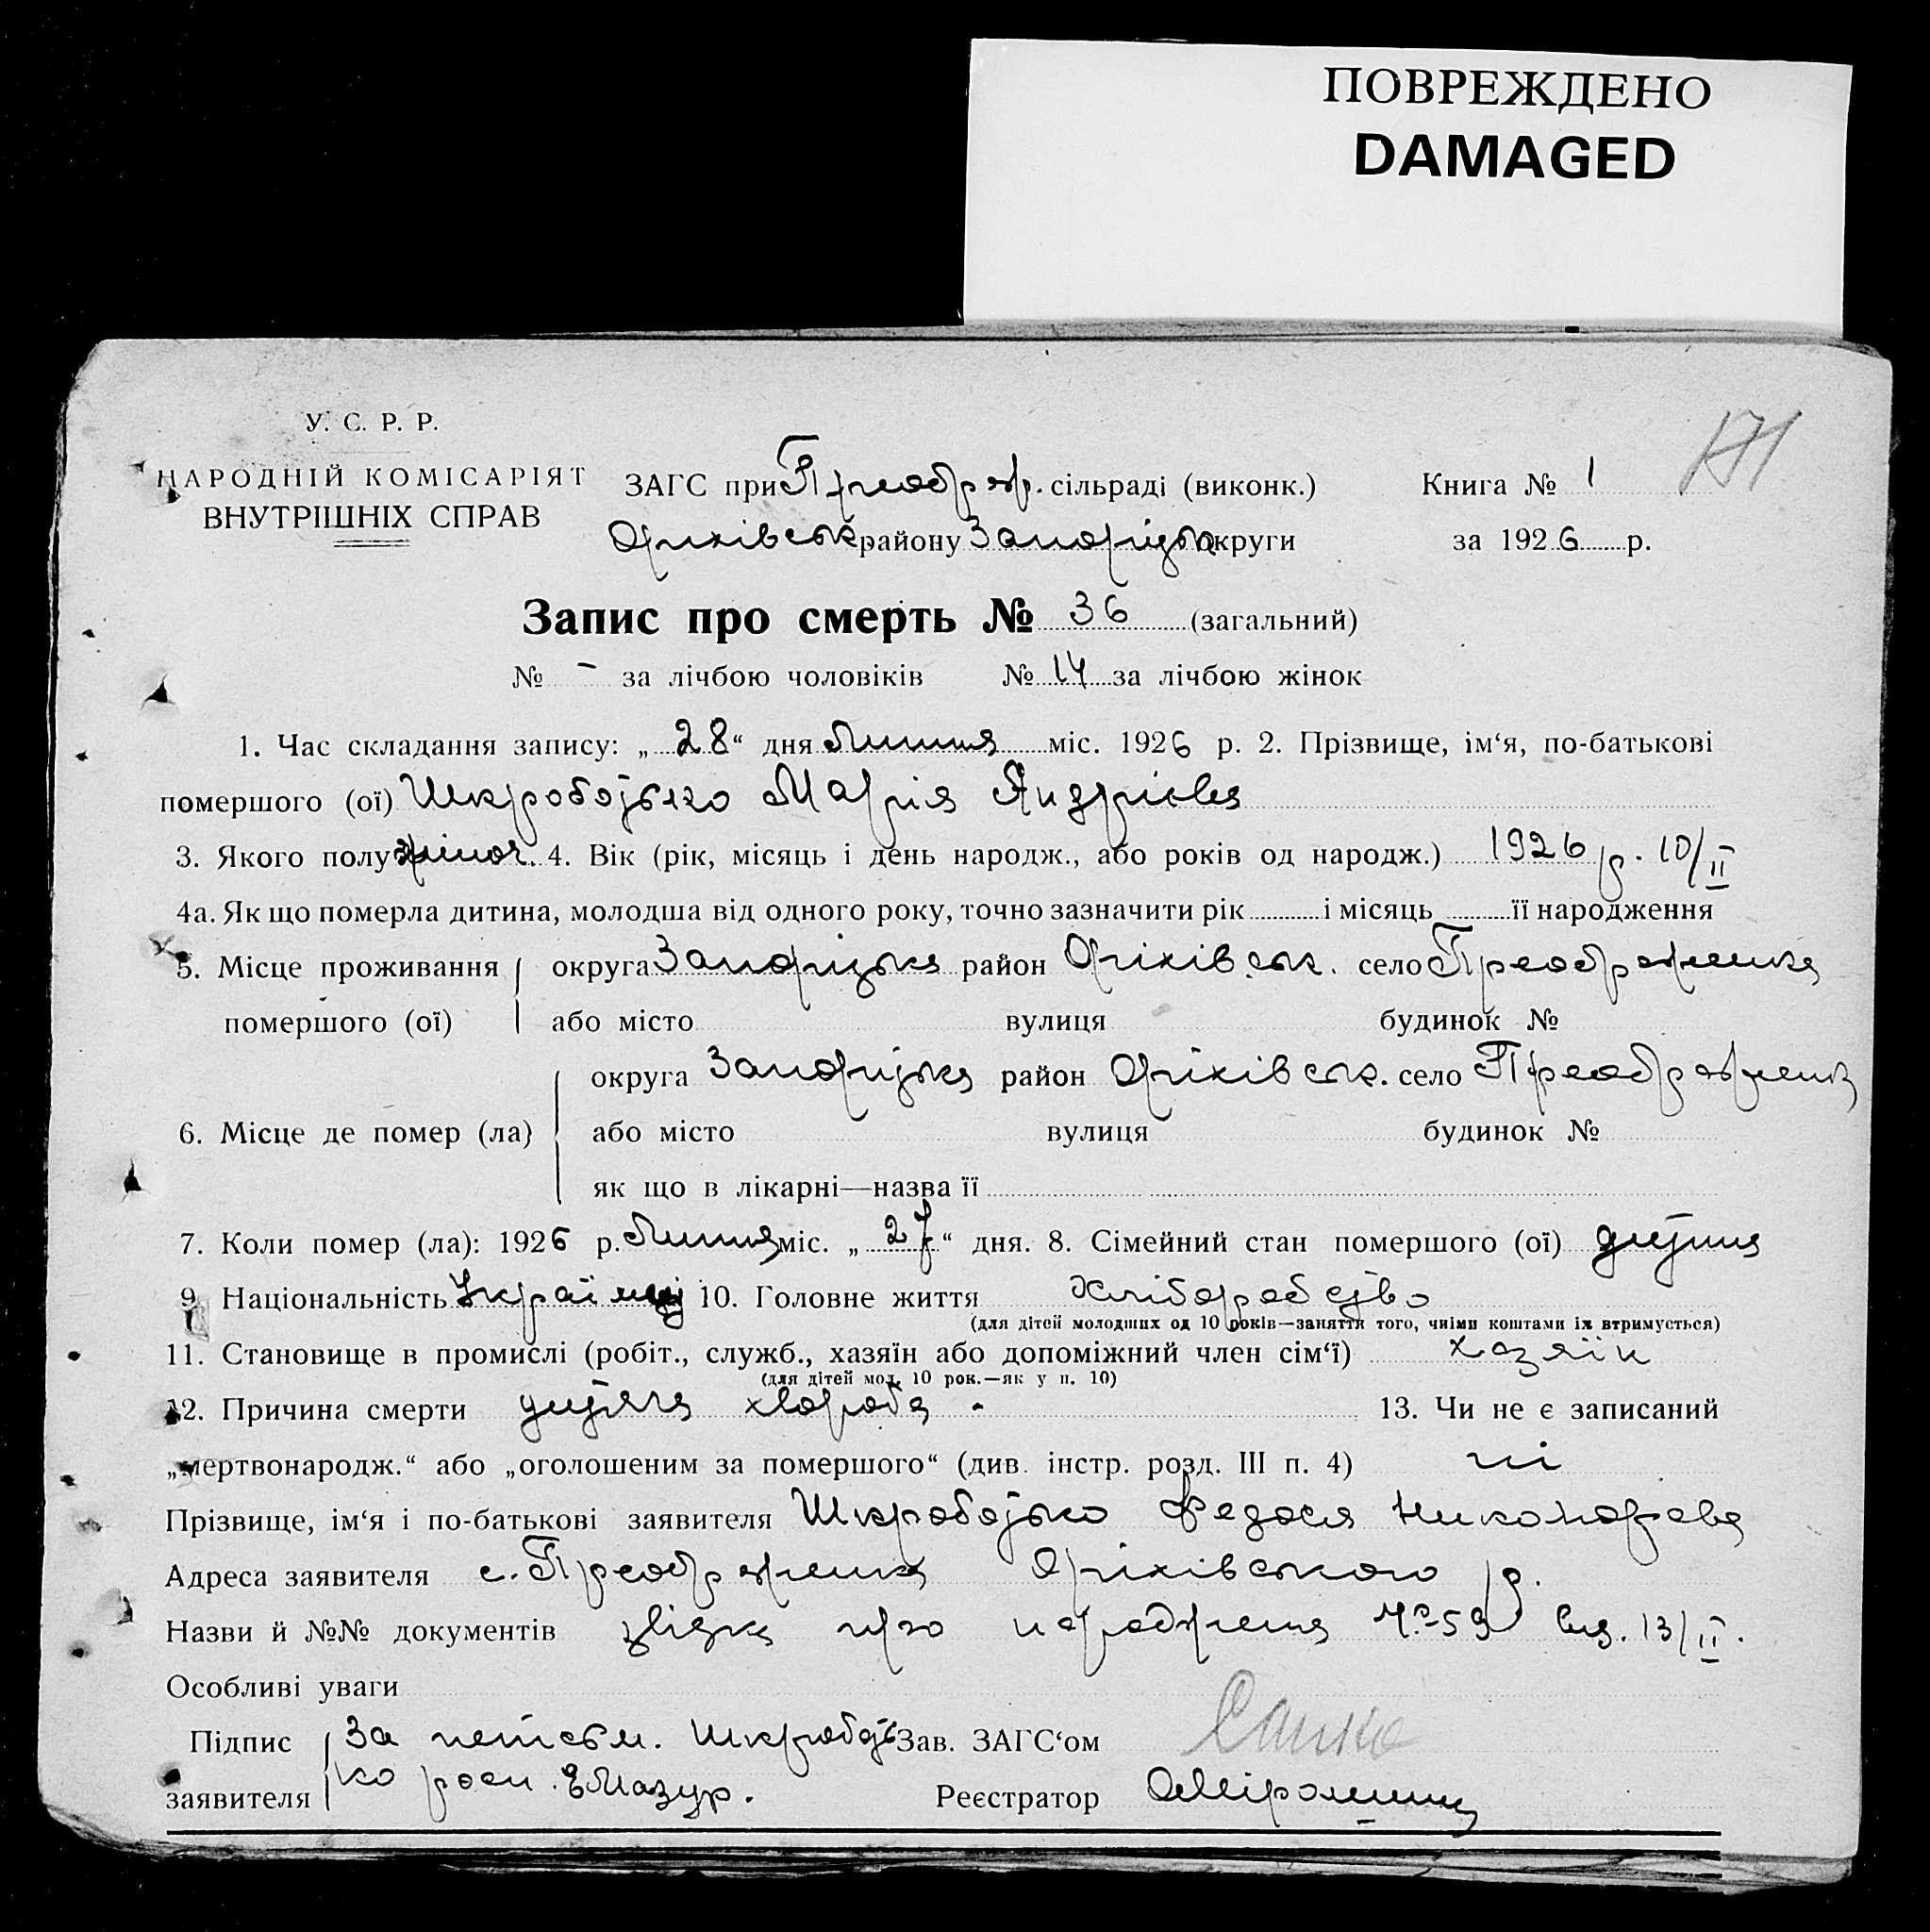 ПОВРЕЖДЕНО
DAMAGED
171
У. С. Р. Р.
НАРОДНІЙ КОМІСАРІЯТ
ВНУТРІШНІХ СПРАВ
ЗАГС при Преображ. сільраді (виконк.) Книга № 1
Оріхівськ району Запорізька округи за 1926 р.
Запис про смерть № 36 (загальний)
№ - за лічбою чоловіків № 14 за лічбою жінок
1. Час складання запису: „28“ дня Липня міс. 1926 р. 2. Прізвище, ім‘я, по-батькові
помершого (ої) Шкроботько Марія Андрієва
3. Якого полу жіноч. 4. Вік (рік, місяць і день народж., або років од народж.) 1926 р. 10/II
4а. Як що померла дитина, молодша від одного року, точно зазначити рік і місяць її народження
5. Місце проживання округа Запоріцька район Оріхівськ. село Преображенка
помершого (ої) або місто вулиця будинок №
округа Запоріцька район Оріхівськ. село Преображенка
6. Місце де помер (ла) або місто вулиця будинок №
як що в лікарні—назва її
7. Коли помер (ла): 1926 р. Липня міс. „27“ дня. 8. Сімейний стан помершого (ої) дитина
9. Національність Україн 10. Головне життя Хліборобство
(для дітей молодших од 10 років—заняття того, чиїми коштами їх втримується)
11. Становище в промислі (робіт., служб., хазяїн або допоміжний член сім‘ї) хазяїн
(для дітей мол. 10 рок.—як у п. 10)
12. Причина смерти дитяча хвороба - 13. Чи не є записаний
„мертвонародж.“ або „оголошеним за помершого“ (див. інстр. розд. III п. 4) ні
Прізвище, ім‘я і по-батькові заявителя Шкроботько Федося Никонорова
Адреса заявителя с. Преображенка Оріхівського р.
Назви й №№ документів звідка про народження № 59 вид. 13/II.
Особливі уваги
Підпис За неписьм. Шкроботь Зав. ЗАГС‘ом
заявителя ко росп. Мазур. Реєстратор